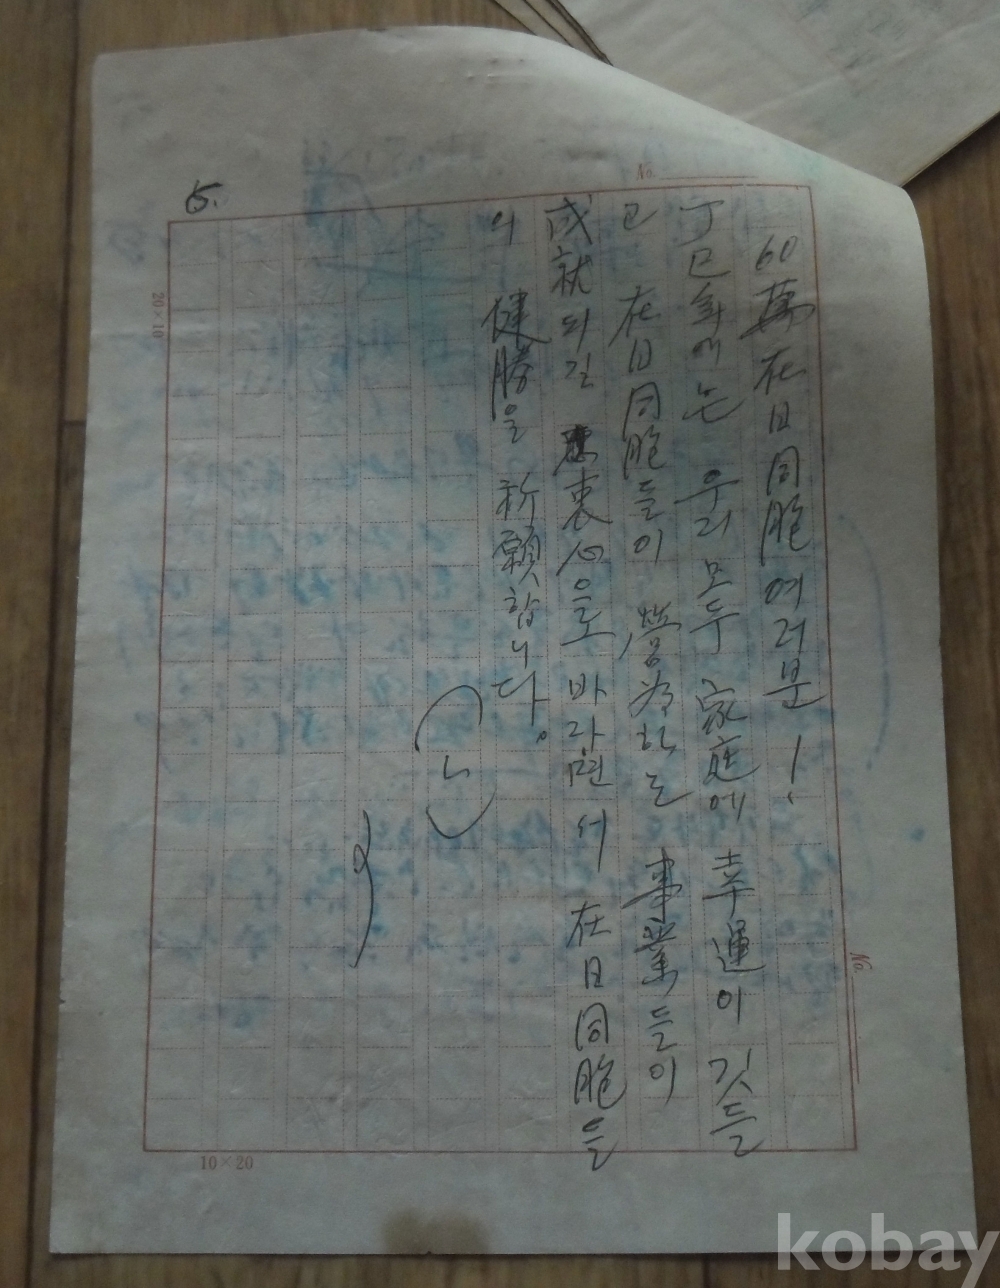 5.
No.
60萬在日同胞여러분!
丁巳年에는 우리모두 家庭에 幸運이 깃들
고 在日同胞들이 營為하는 事業들이
成就되길 衷心으로 바라면서 在日同胞들
의 健勝을 祈願합니다.
20×10
10×20
No.
kobay